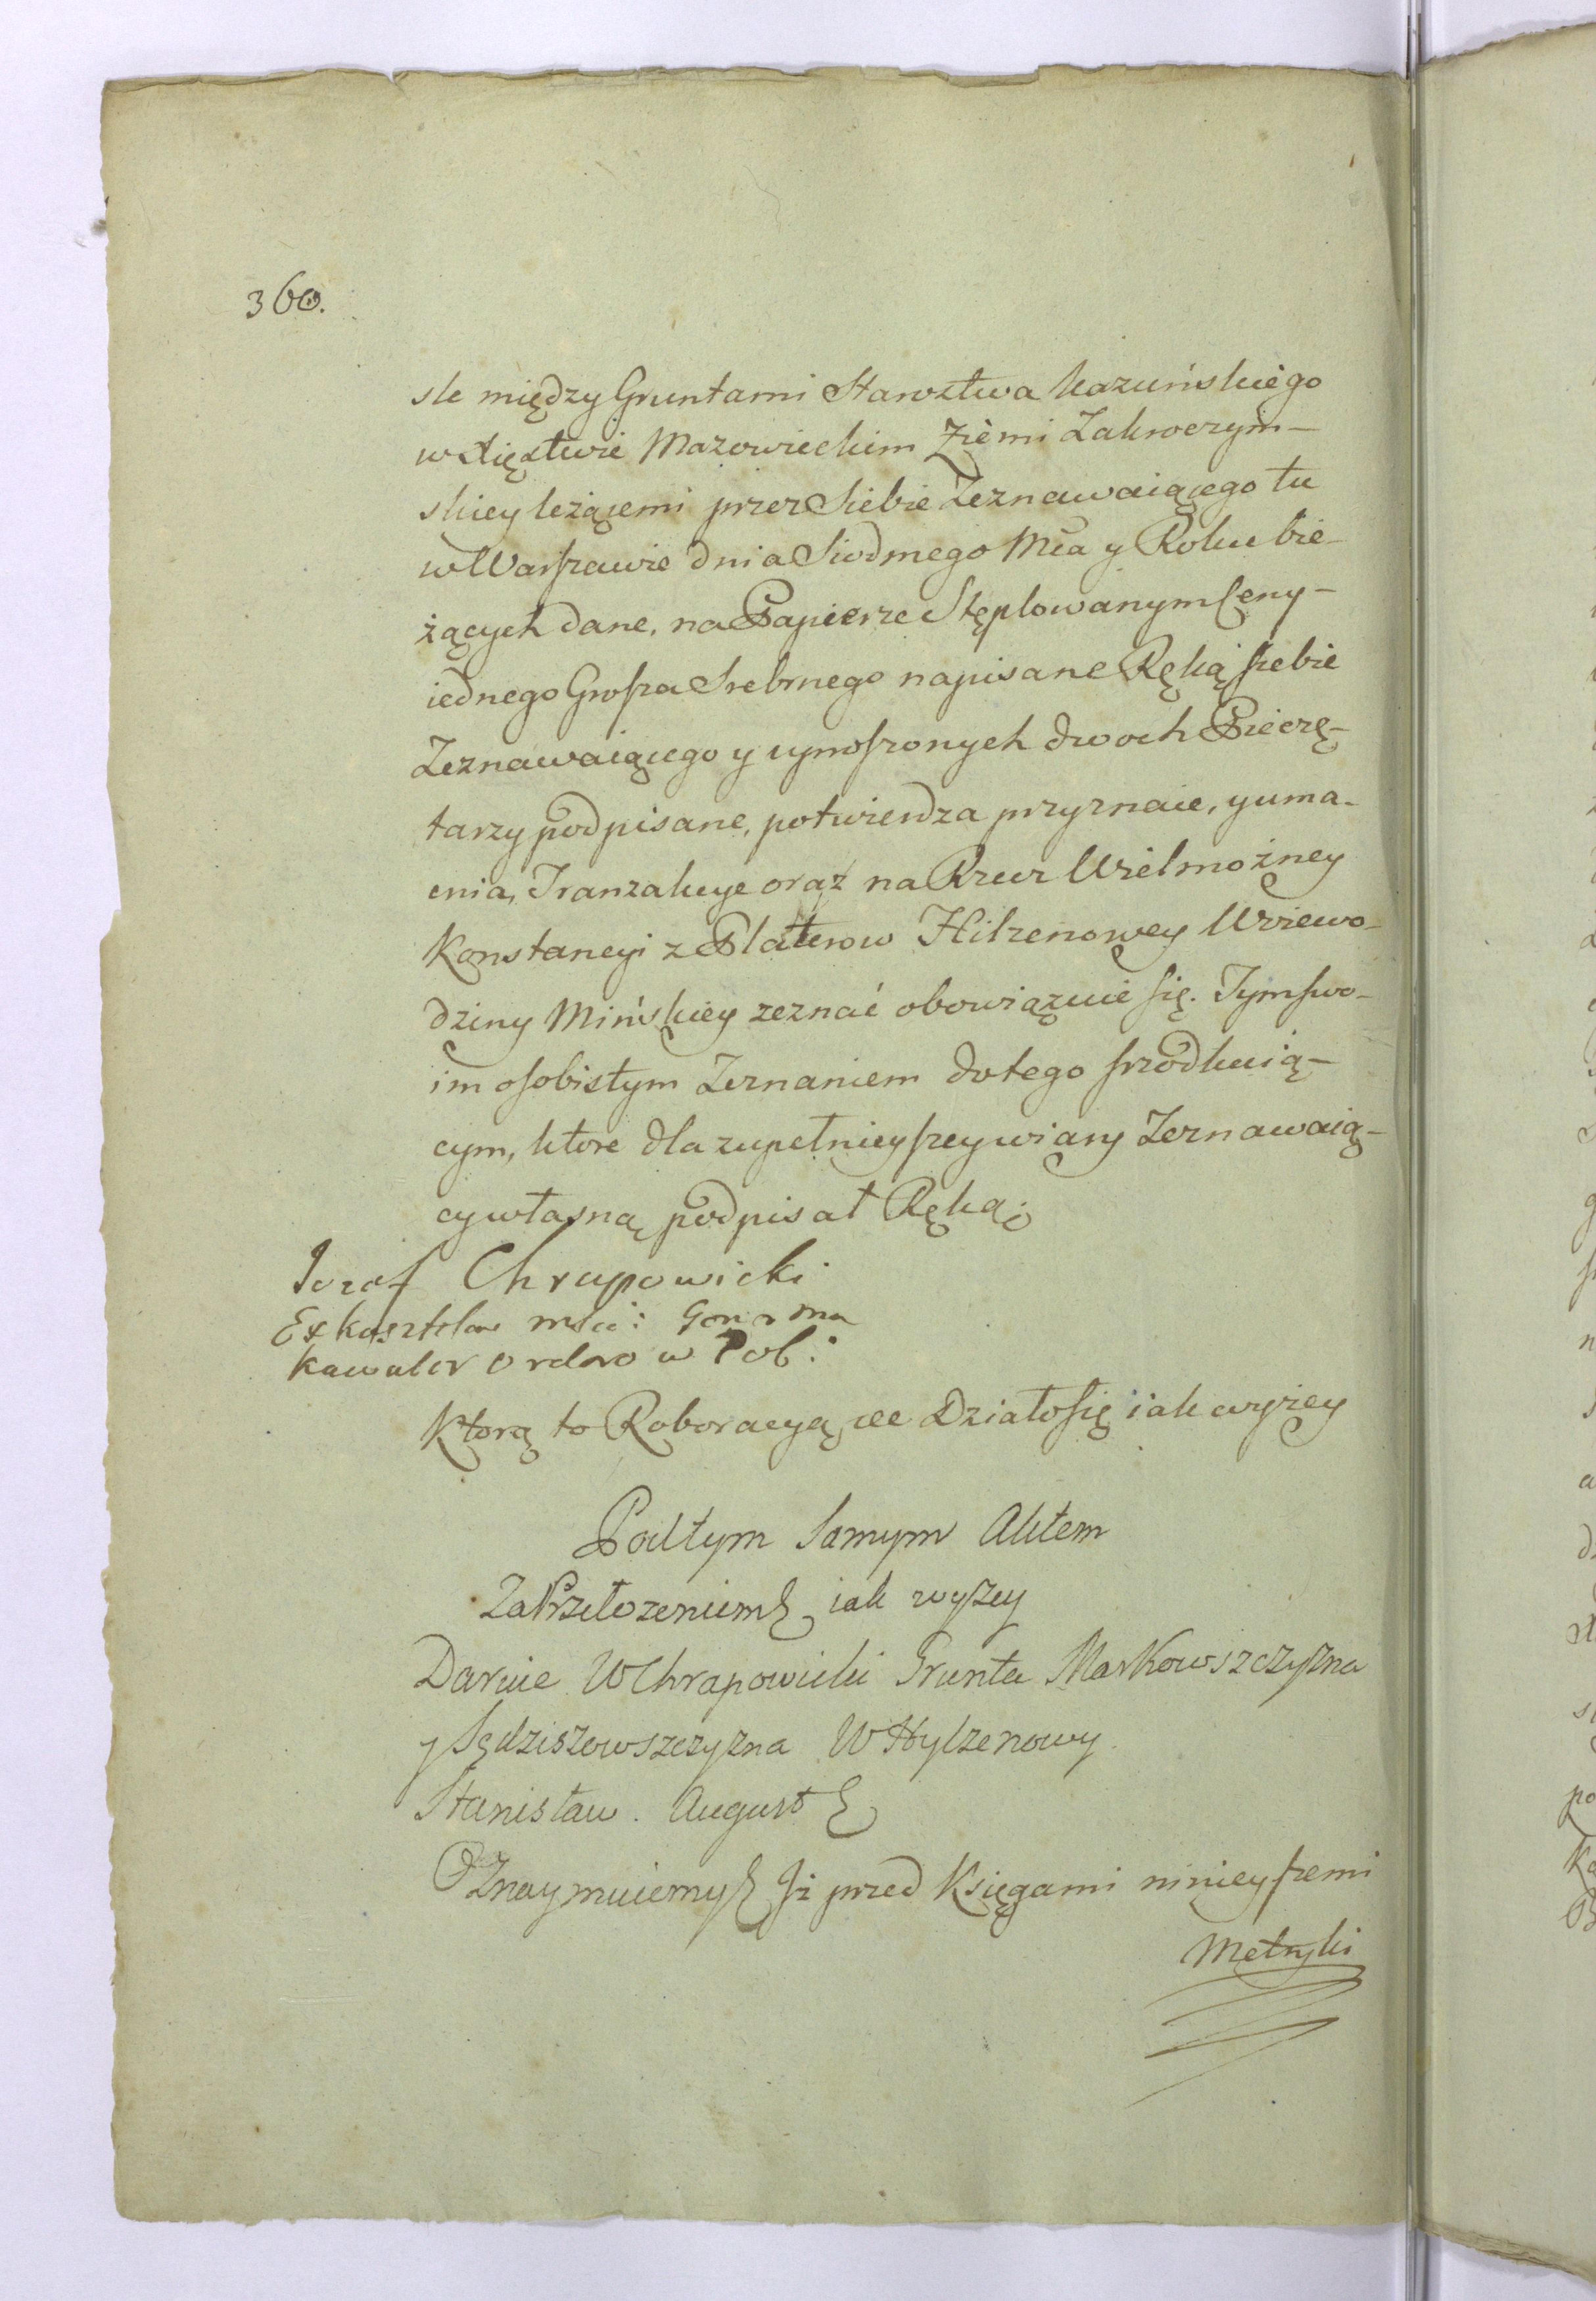 360.
sle między Gruntami Starostwa Kazuńskiego
w Xięstwie Mazowieckim Ziemi Zakroczym-
skiey leżącemi przez Siebie Zeznawaiącego tu
w Warszawie dnia Siodmego Mca y Roku bie-
żących dane, na Papierze Stęplowanym Ceny-
iednego Grosza Srebrnego napisane Ręką siebie
Zeznawaiącego y uproszonych dwoch Pieczę-
tarzy podpisane, potwierdza przyznaie, y uma-
cnia, Tranzakcye oraz na Rzecz Wielmożney
Konstancyi z Platerow Hilzenowey Woiewo-
dziny Mińskiey zeznać obowiązuie się. Tym swo-
im osobistym Zeznaniem do tego srzodkuią-
cym, ktore dla zupełnieyszey wiary Zeznawaią-
cy własną podpisał Ręką;
Iozef Chrapowicki
Ex kasztelan mści:
Kawaler Orderow Pol:
Ktorą to Roboracyą etc Działo się iak wyżey
Pod tym Samym Aktem
Za Przełożeniem iak wyżey
Daruie W Chrapowicki Grunta Markowszczyzna
y Sędziszowszczyzna W Hylzenowy
Stanisław. August
Oznaymuiemy Iż przed Księgami ninieyszemi
Metryki